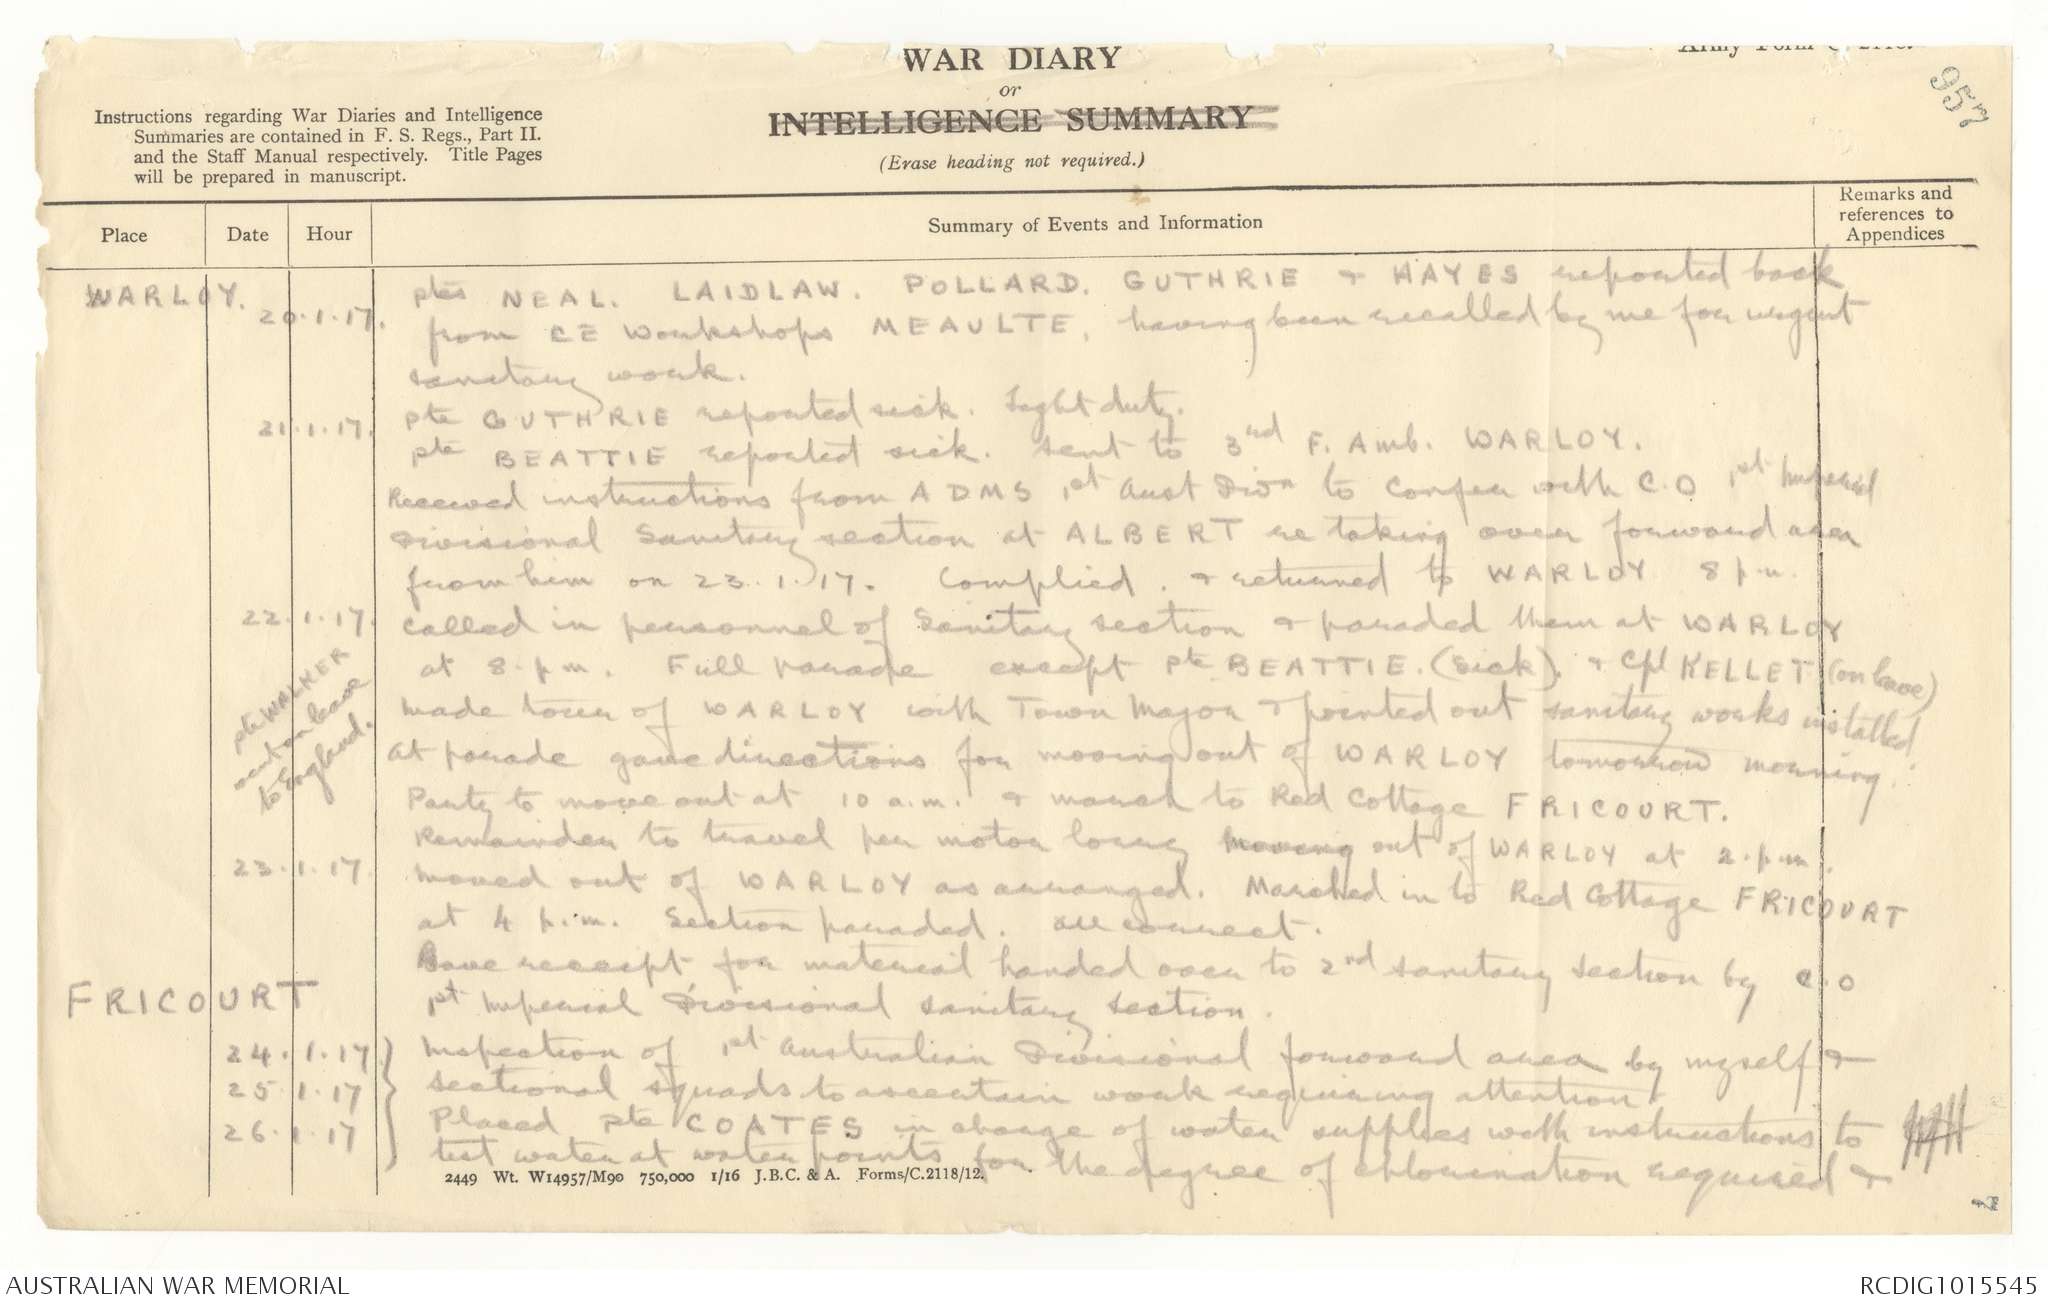 WAR DIARY
or
INTELLIGENCE SUMMARY
(Erase heading not required.)
Army Form C. 2118.
957
Instructions regarding War Diaries and Intelligence
Summaries are contained in F. S. Regs., Part II.
and the Staff Manual respectively. Title Pages
will be prepared in manuscript.
Place Date Hour Summary of Events and Information Remarks and references to Appendices
WARLOY. 20.1.17. ptes NEAL. LAIDLAW. POLLARD. GUTHRIE & HAYES reported back
from CE Workshops MEAULTE, having been recalled by me for urgent
sanitary work.
21.1.17. pte GUTHRIE reported sick. Light duty.
pte BEATTIE reported sick. Sent to 3rd F. Amb. WARLOY.
Received instructions from ADMS 1st Aust Divn to confer with C.O 1st Imperial
Divisional Sanitary section at ALBERT re taking over forward area
from him on 23.1.17. Complied. & returned to WARLOY 8 p.m.
22.1.17. Called in personnel of Sanitary section & paraded them at WARLOY
at 8.p.m. Full parade except pte BEATTIE. (sick). & Cpl KELLET (on leave)
pte WALKER
out on leave
to England.
Made tour of WARLOY with Town Major & pointed out sanitary works installed
At parade gave directions for moving out of WARLOY tomorrow morning.
Party to move out at 10 a.m. & march to Red Cottage FRICOURT.
Remainder to travel per motor lorry moving out of WARLOY at 2.p.m.
23.1.17. Moved out of WARLOY as arranged. Marched in to Red Cottage FRICOURT
at 4 p.m. Section paraded. all correct.
Gave receipt for material handed over to 2nd sanitary section by C.O
FRICOURT 1st Imperial Divisional sanitary section.
24.1.17 Inspection of 1st Australian Divisional forward area by myself &
25.1.17 sectional squads to ascertain work requiring attention.
26.1.17 Placed pte COATES in charge of water supplies with instructions to
test water at water points for the degree of chlorination required &
2449 Wt. W14957/M90 750,000 1/16 J.B.C. & A. Forms/C.2118/12.
AUSTRALIAN WAR MEMORIAL
RCDIG1015545